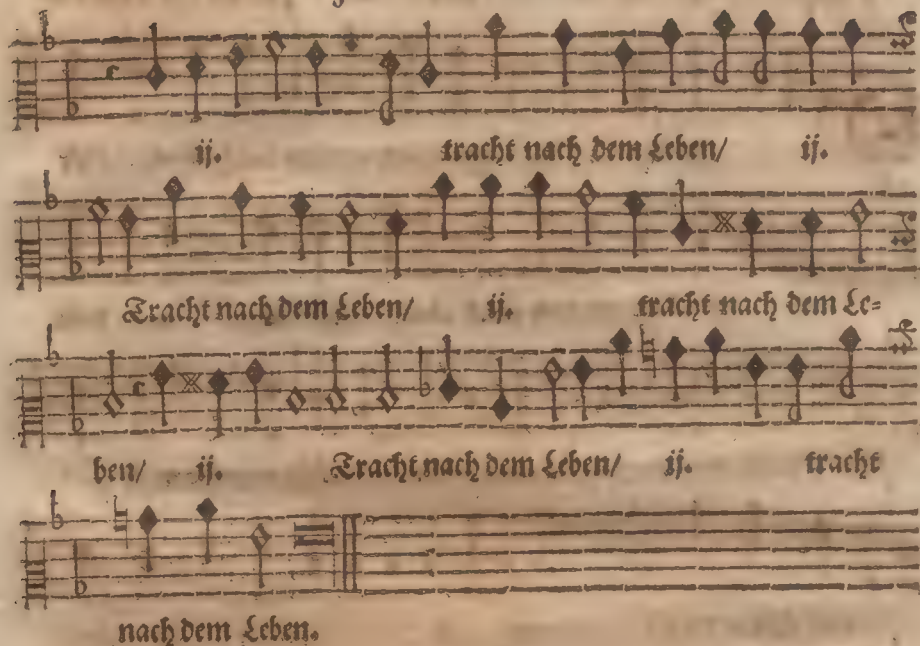 ij. tracht nach dem Leben/ ij.
Tracht nach dem Leben/ ij. tracht nach dem Le=
ben/ ij. Tracht nach dem Leben/ ij. tracht
nach dem Leben.